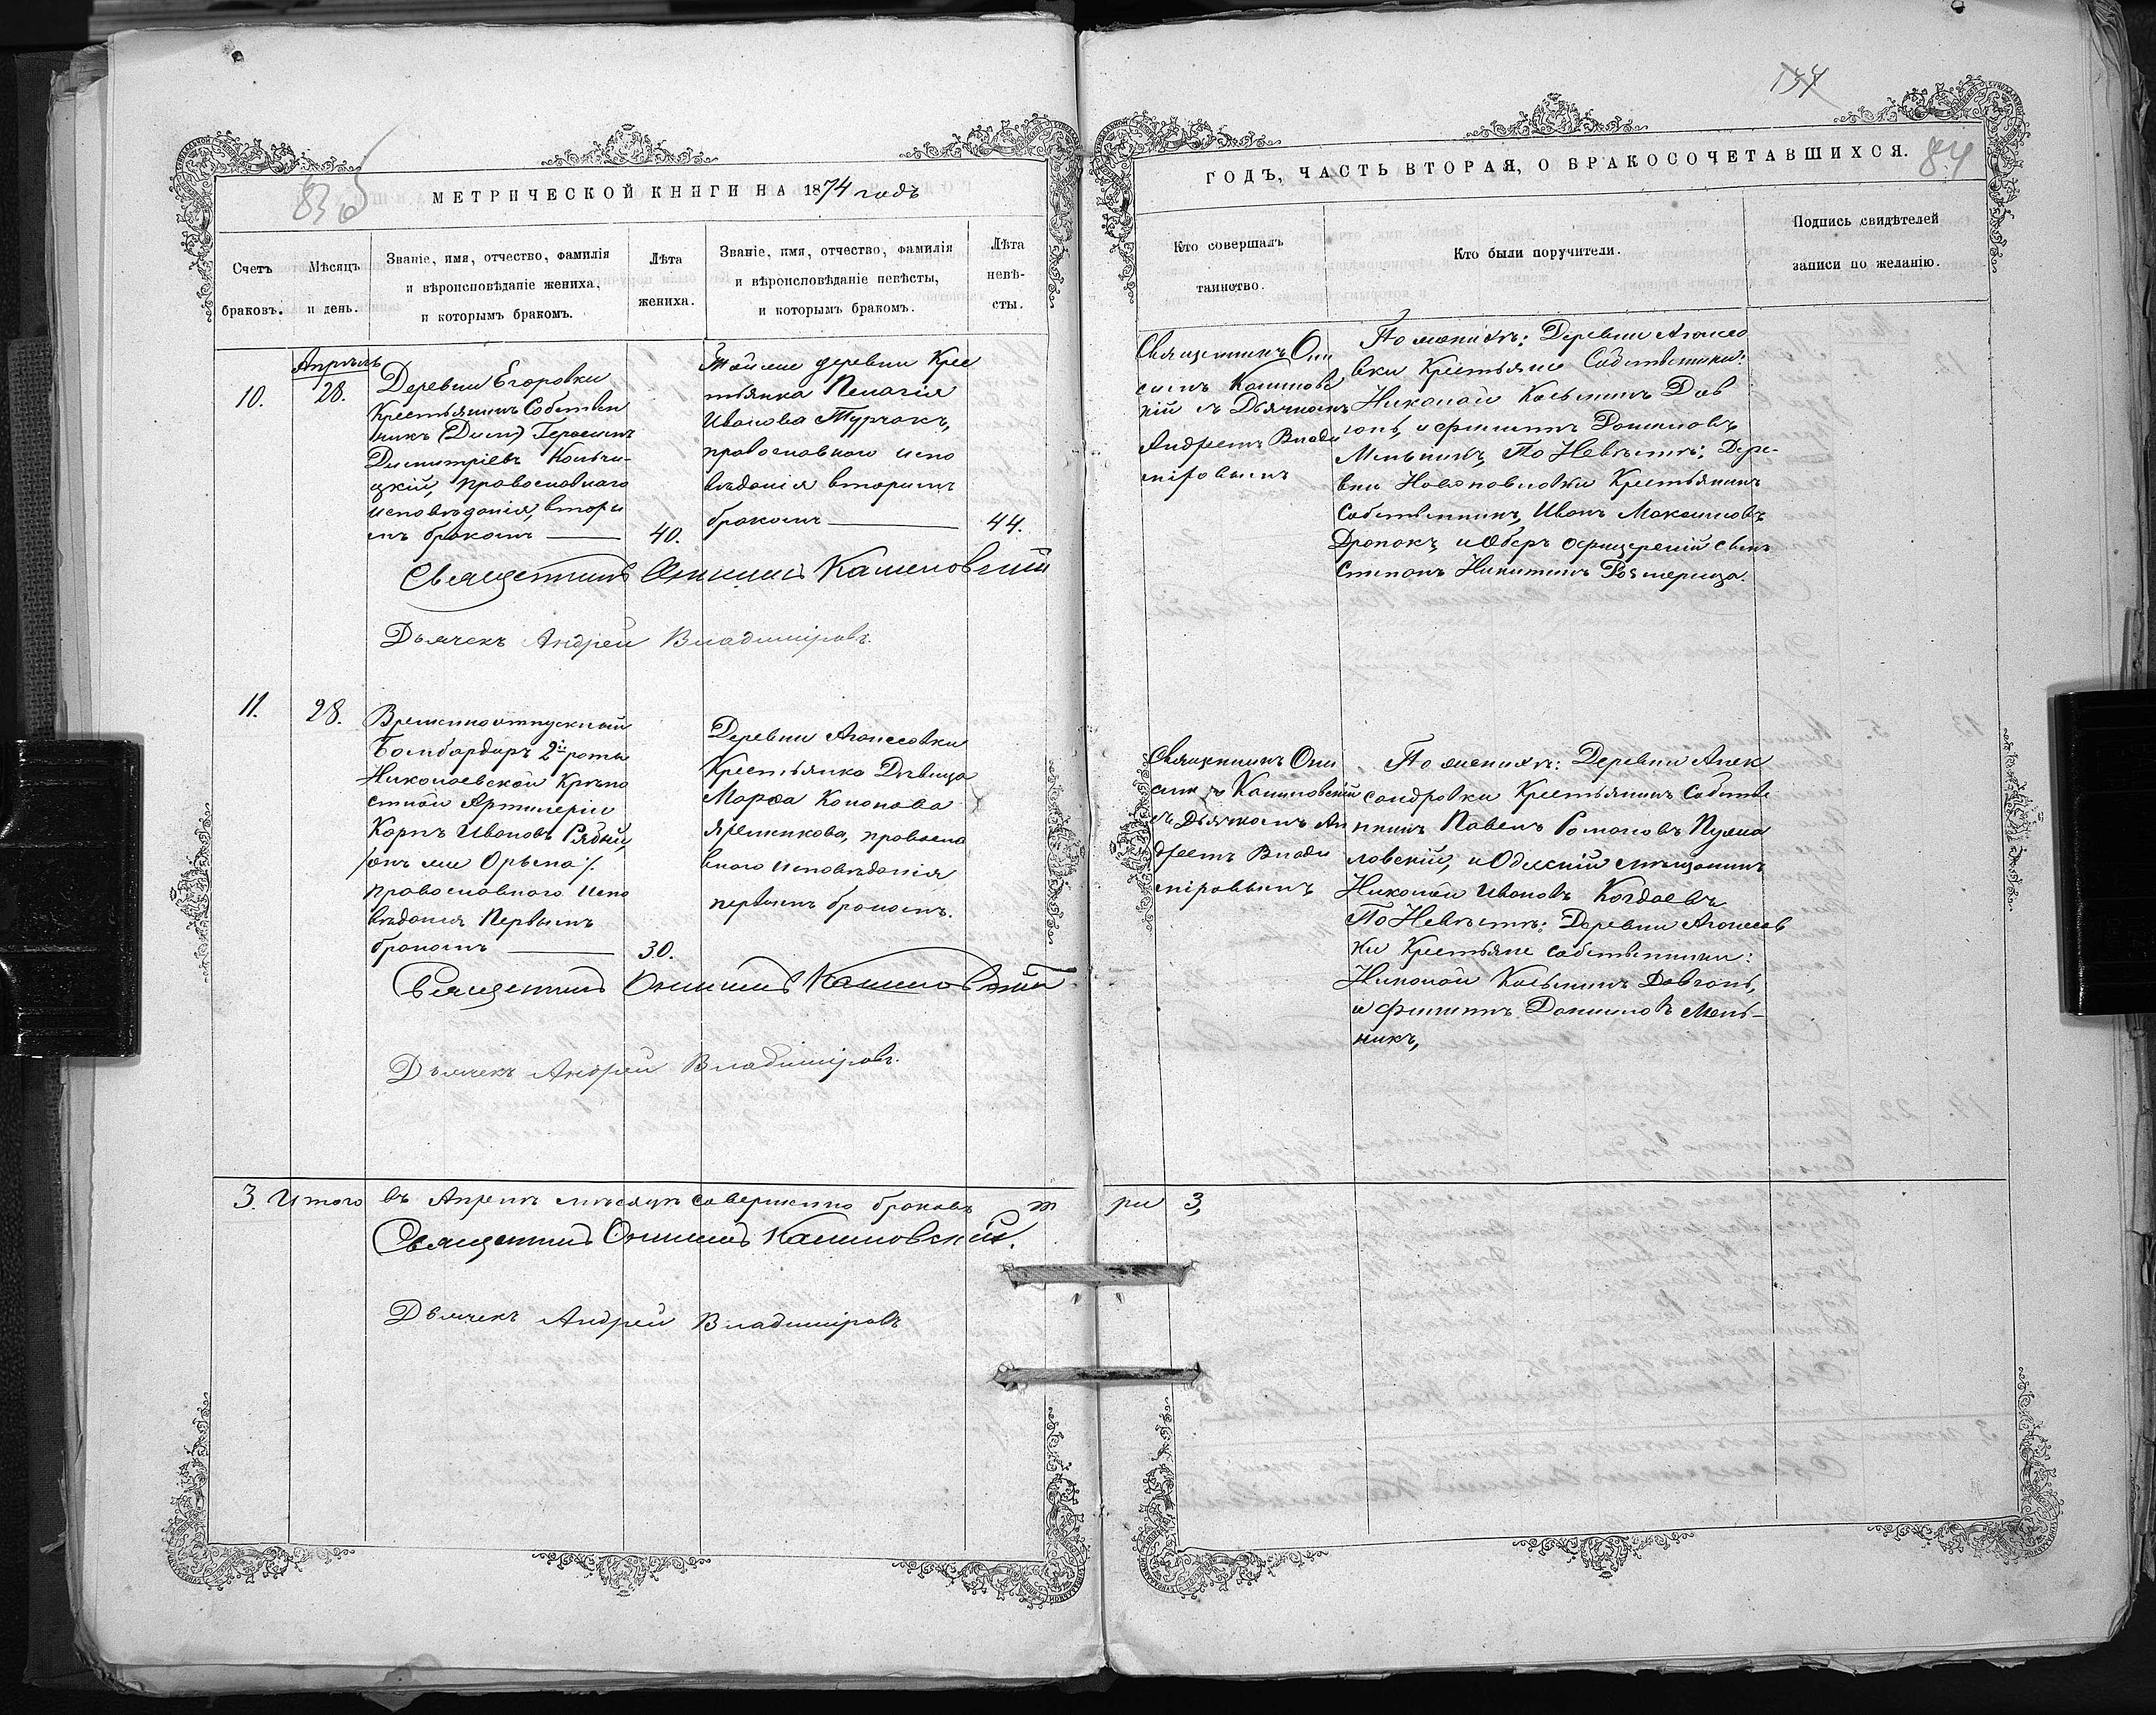 134
83 об
МЕТРИЧЕСКОЙ КНИГИ НА 1874 годъ
Счетъ браковъ.
Мѣсяцъ и день.
Званіе, имя, отчество, фамилія
и вѣроисповѣданіе жениха,
и которымъ бракомъ.
Лѣта
жениха.
Званіе, имя, отчество, фамилія
и вѣроисповѣданіе невѣсты,
и которымъ бракомъ.
Лѣта
невѣ-
сты.
Апрѣль
10.
28.
Деревни Егоровки
Крестьянинъ Собствен
никъ Герасимъ
Димитріевъ
цкій, православнаго
исповѣданія, вторы
мъ бракомъ
40.
Тойже деревни Крес
тьянка Пелагія
Иванова Турчакъ,
православного испо
вѣданія вторымъ
бракомъ
44.
Священникъ Онисимъ Калиновскій
Дьячекъ Андрей Владиміровъ.
11.
28.
Временноотпускный
Бомбардиръ 2й роты
Николаевской Крѣпо
стной Артилеріи
Карпъ Ивановъ Рябый,
/онъ же Орьма/.
православного испо
вѣданія Первымъ
бракомъ
30.
Деревни
Крестьянка Дѣвица
Марфа Кононова
Яременкова, правосла
вного исповѣданія
первымъ бракомъ.
Священникъ Онисимъ Калиновскій
Дьячекъ Андрей Владиміровъ.
3. Итого въ Апрелѣ мѣсяцѣ совершено браковъ т
Священникъ Онисимъ Калиновскій.
Дьячекъ Андрей Владиміровъ
ГОДЪ, ЧАСТЬ ВТОРАЯ, О БРАКОСОЧЕТАВШИХСЯ.
84
Кто совершалъ
таинство.
Кто были поручители.
Подпись свидѣтелей
записи по желанію.
Священникъ Они
симъ Калиновс
кій съ Дьячкомъ
Андреемъ Влади
міровымъ
По женихѣ: Деревни
вки Крестьяне Собственники:
Николай Косьминъ Дов
гонь, и Филипъ Даниловъ
Мельникъ, По Невѣстѣ: Дере-
вни Новопавловки Крестьянинъ
Собственникъ, Иванъ Максимовъ
Дропокъ, и Оберъ офицерскій сынъ
Степанъ Никитинъ
Священникъ Они
симъ Калиновскій
съ Дьячкомъ Ан
дреемъ Влади
міровымъ
По женихѣ: Деревни Алек
сандровки Крестьянинъ Собстве
нникъ Павелъ Романовъ
ловскій, и Одескій мѣщанинъ
Николай Ивановъ Когдаевъ
По Невѣстѣ: Деревни
ки Крестьяне собственники:
Николай Косьминъ Довгонь,
и Филипъ Даниловъ Мель-
никъ,
ри 3,